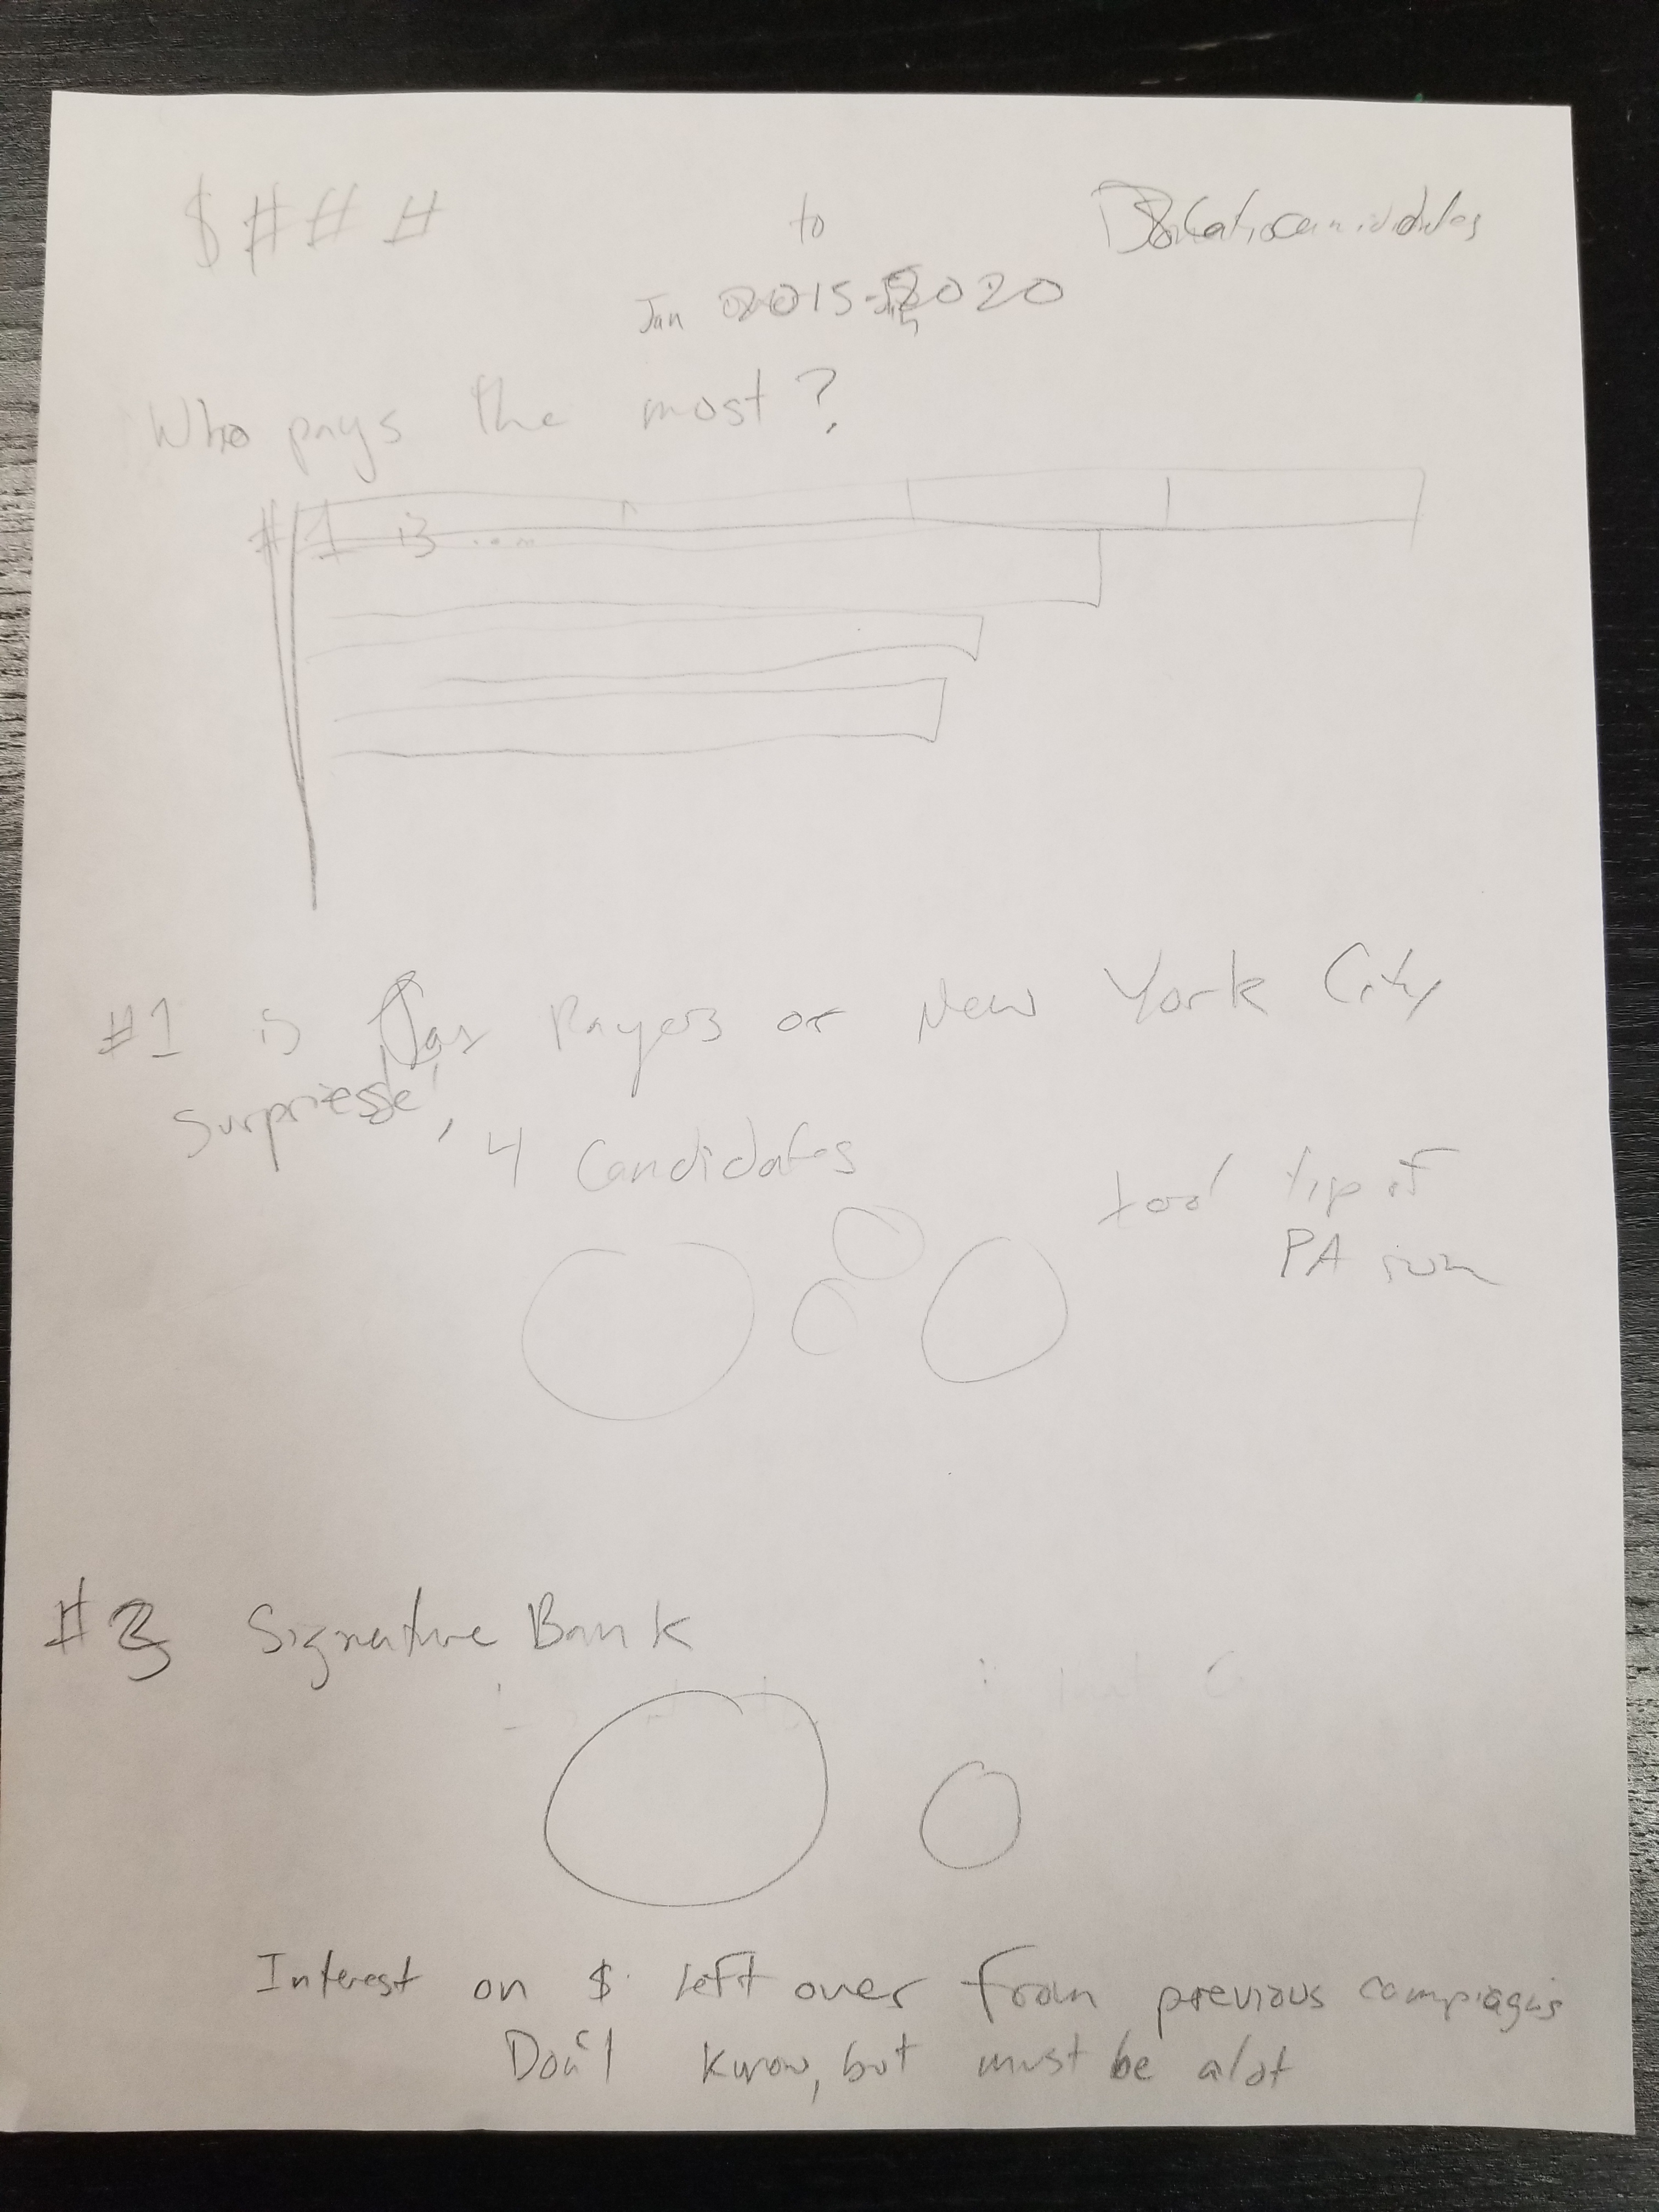 $###    to    candidates
Jan 2015-2020
Who pays the most?
#1 is ....
#1 is Tax Payers of New York City
Surpriesse!, 4 Candidates
tool tip if
PA sum
#3 Signature Bank
Interest on $ left over from previous campiagns
Don't know, but must be alot